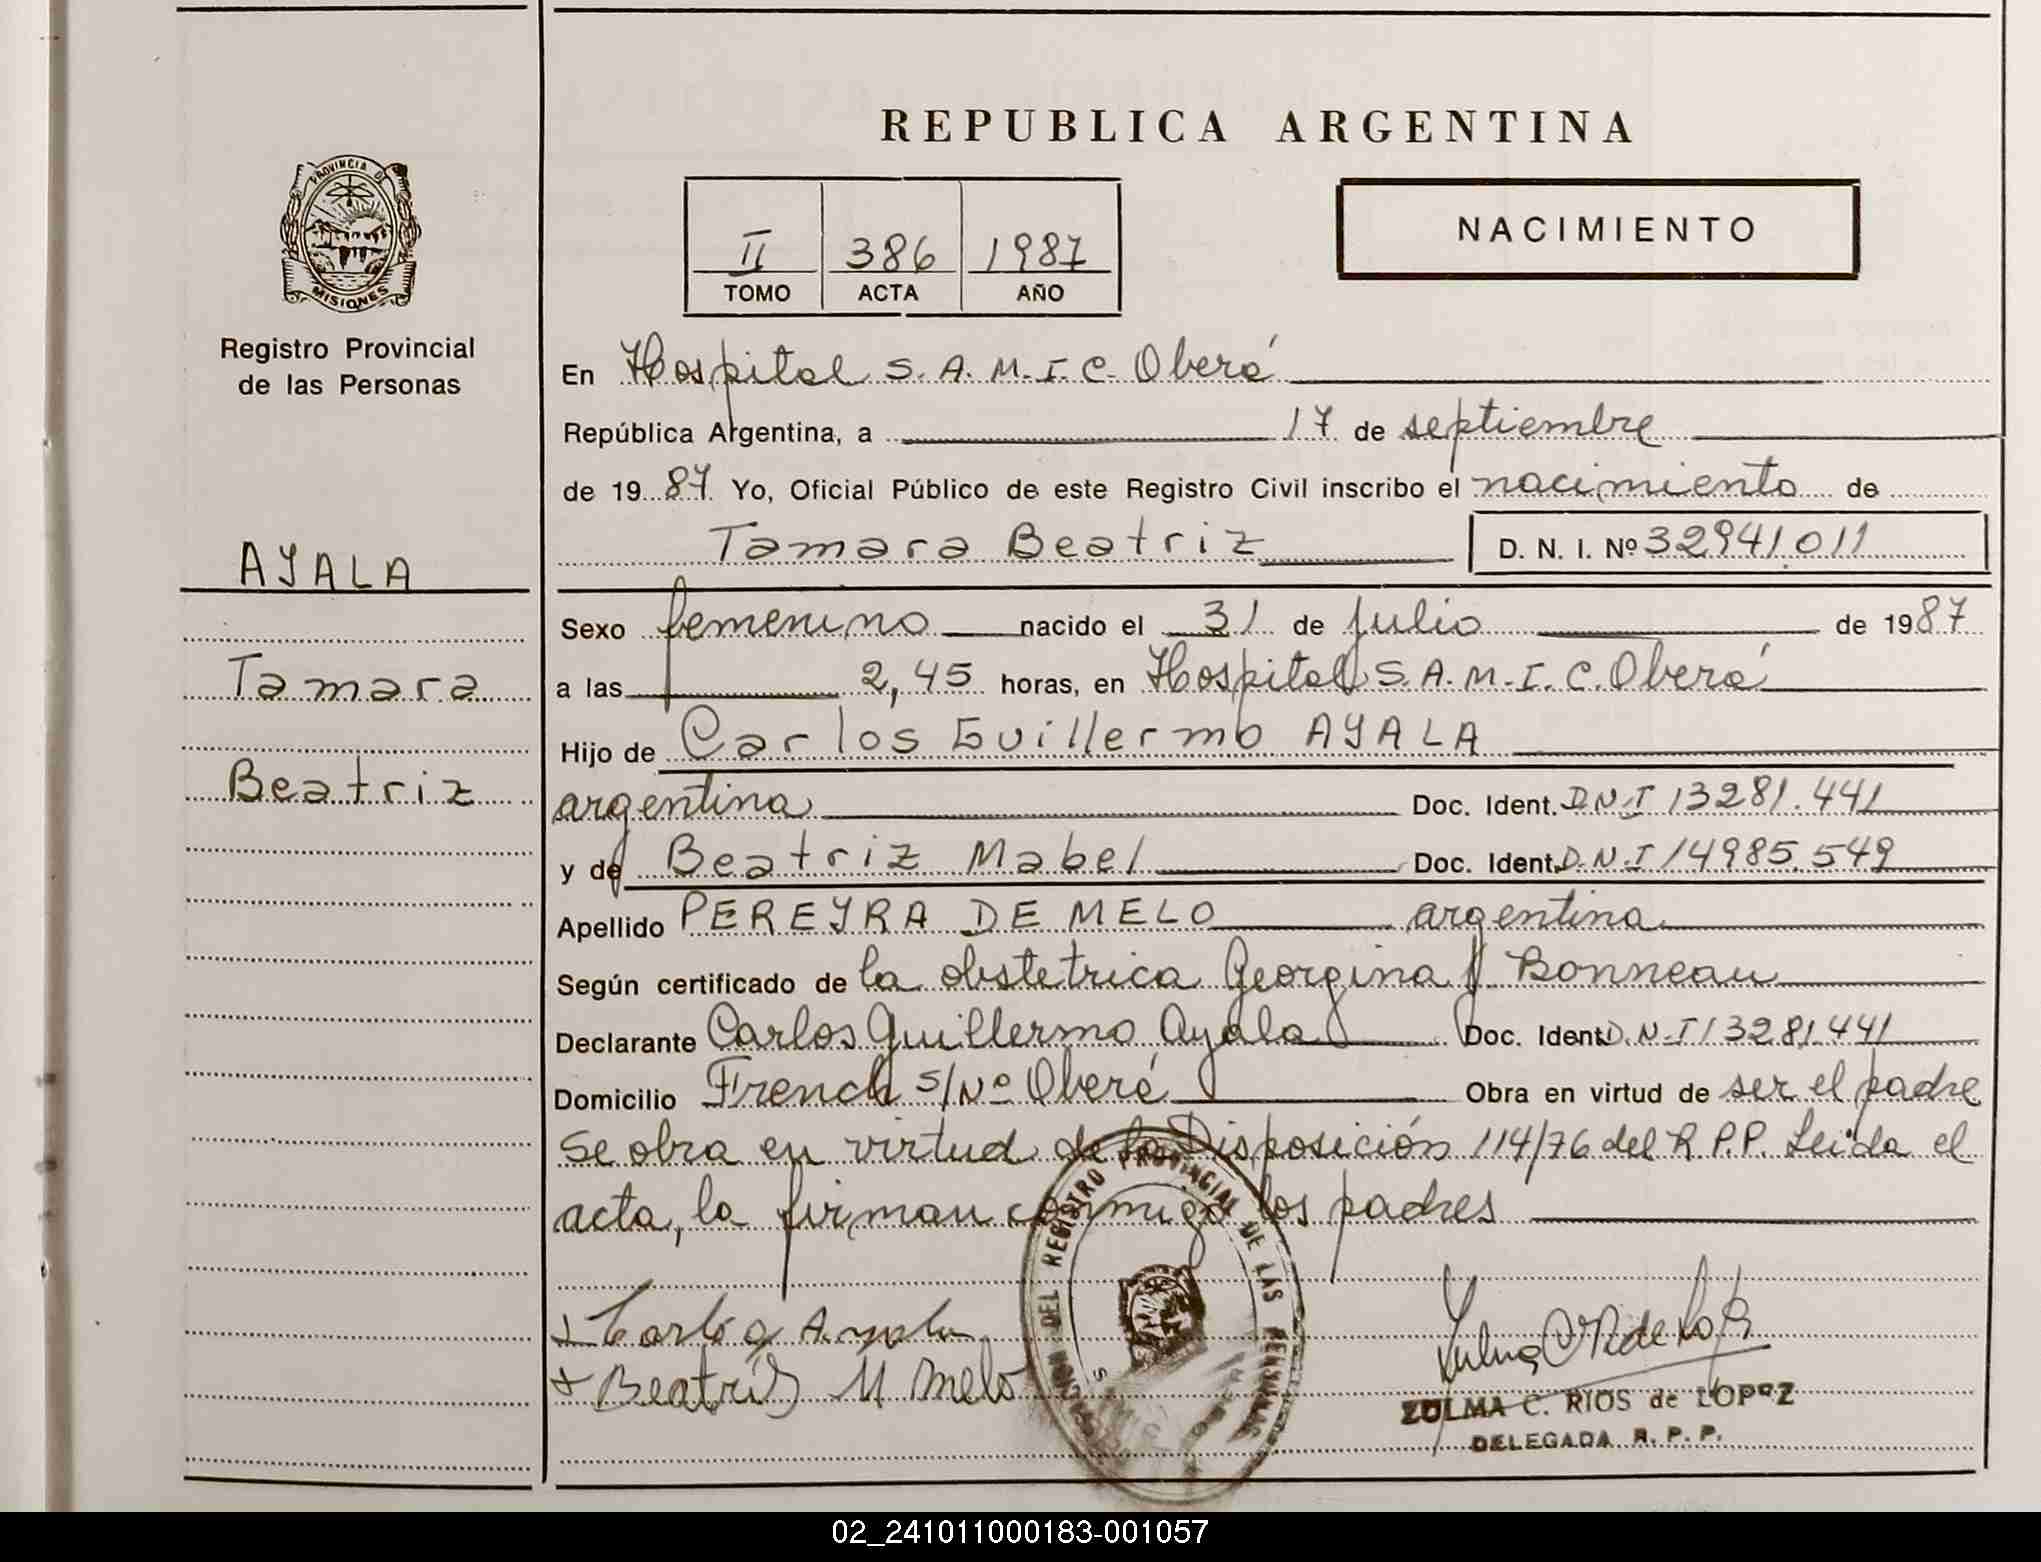 REPUBLICA ARGENTINA
PROVINCIA DE
MISIONES
Registro Provincial
de las Personas
II 386 1987
TOMO ACTA AÑO
NACIMIENTO
En Hospital S.A.M.I.C. Oberá
República Argentina, a 17 de septiembre
de 1987 Yo, Oficial Público de este Registro Civil inscribo el nacimiento de
Tamara Beatriz D. N. I. Nº 32941011
AYALA
Tamara
Beatriz
Sexo femenino nacido el 31 de julio de 1987
a las 2,45 horas, en Hospital S.A.M.I.C. Oberá
Hijo de Carlos Guillermo AYALA
argentina Doc. Ident. D.N.I 13281.441
y de Beatriz Mabel Doc. Ident. D.N.I 14985.549
Apellido PEREYRA DE MELO argentina
Según certificado de la obstetrica Georgina J Bonneau
Declarante Carlos Guillermo Ayala Doc. Ident. D.N.I 13281441
Domicilio French s/Nº Oberá Obra en virtud de ser el padre
Se obra en virtud de la Disposición 114/76 del R.P.P. Leida el
acta, la firman conmigo los padres
Carlos G Ayala
Beatriz M Melo
DEL REGISTRO PROVINCIAL DE LAS PERSONAS
ZULMA C. RIOS de LOPEZ
DELEGADA R. P. P.
02_241011000183-001057